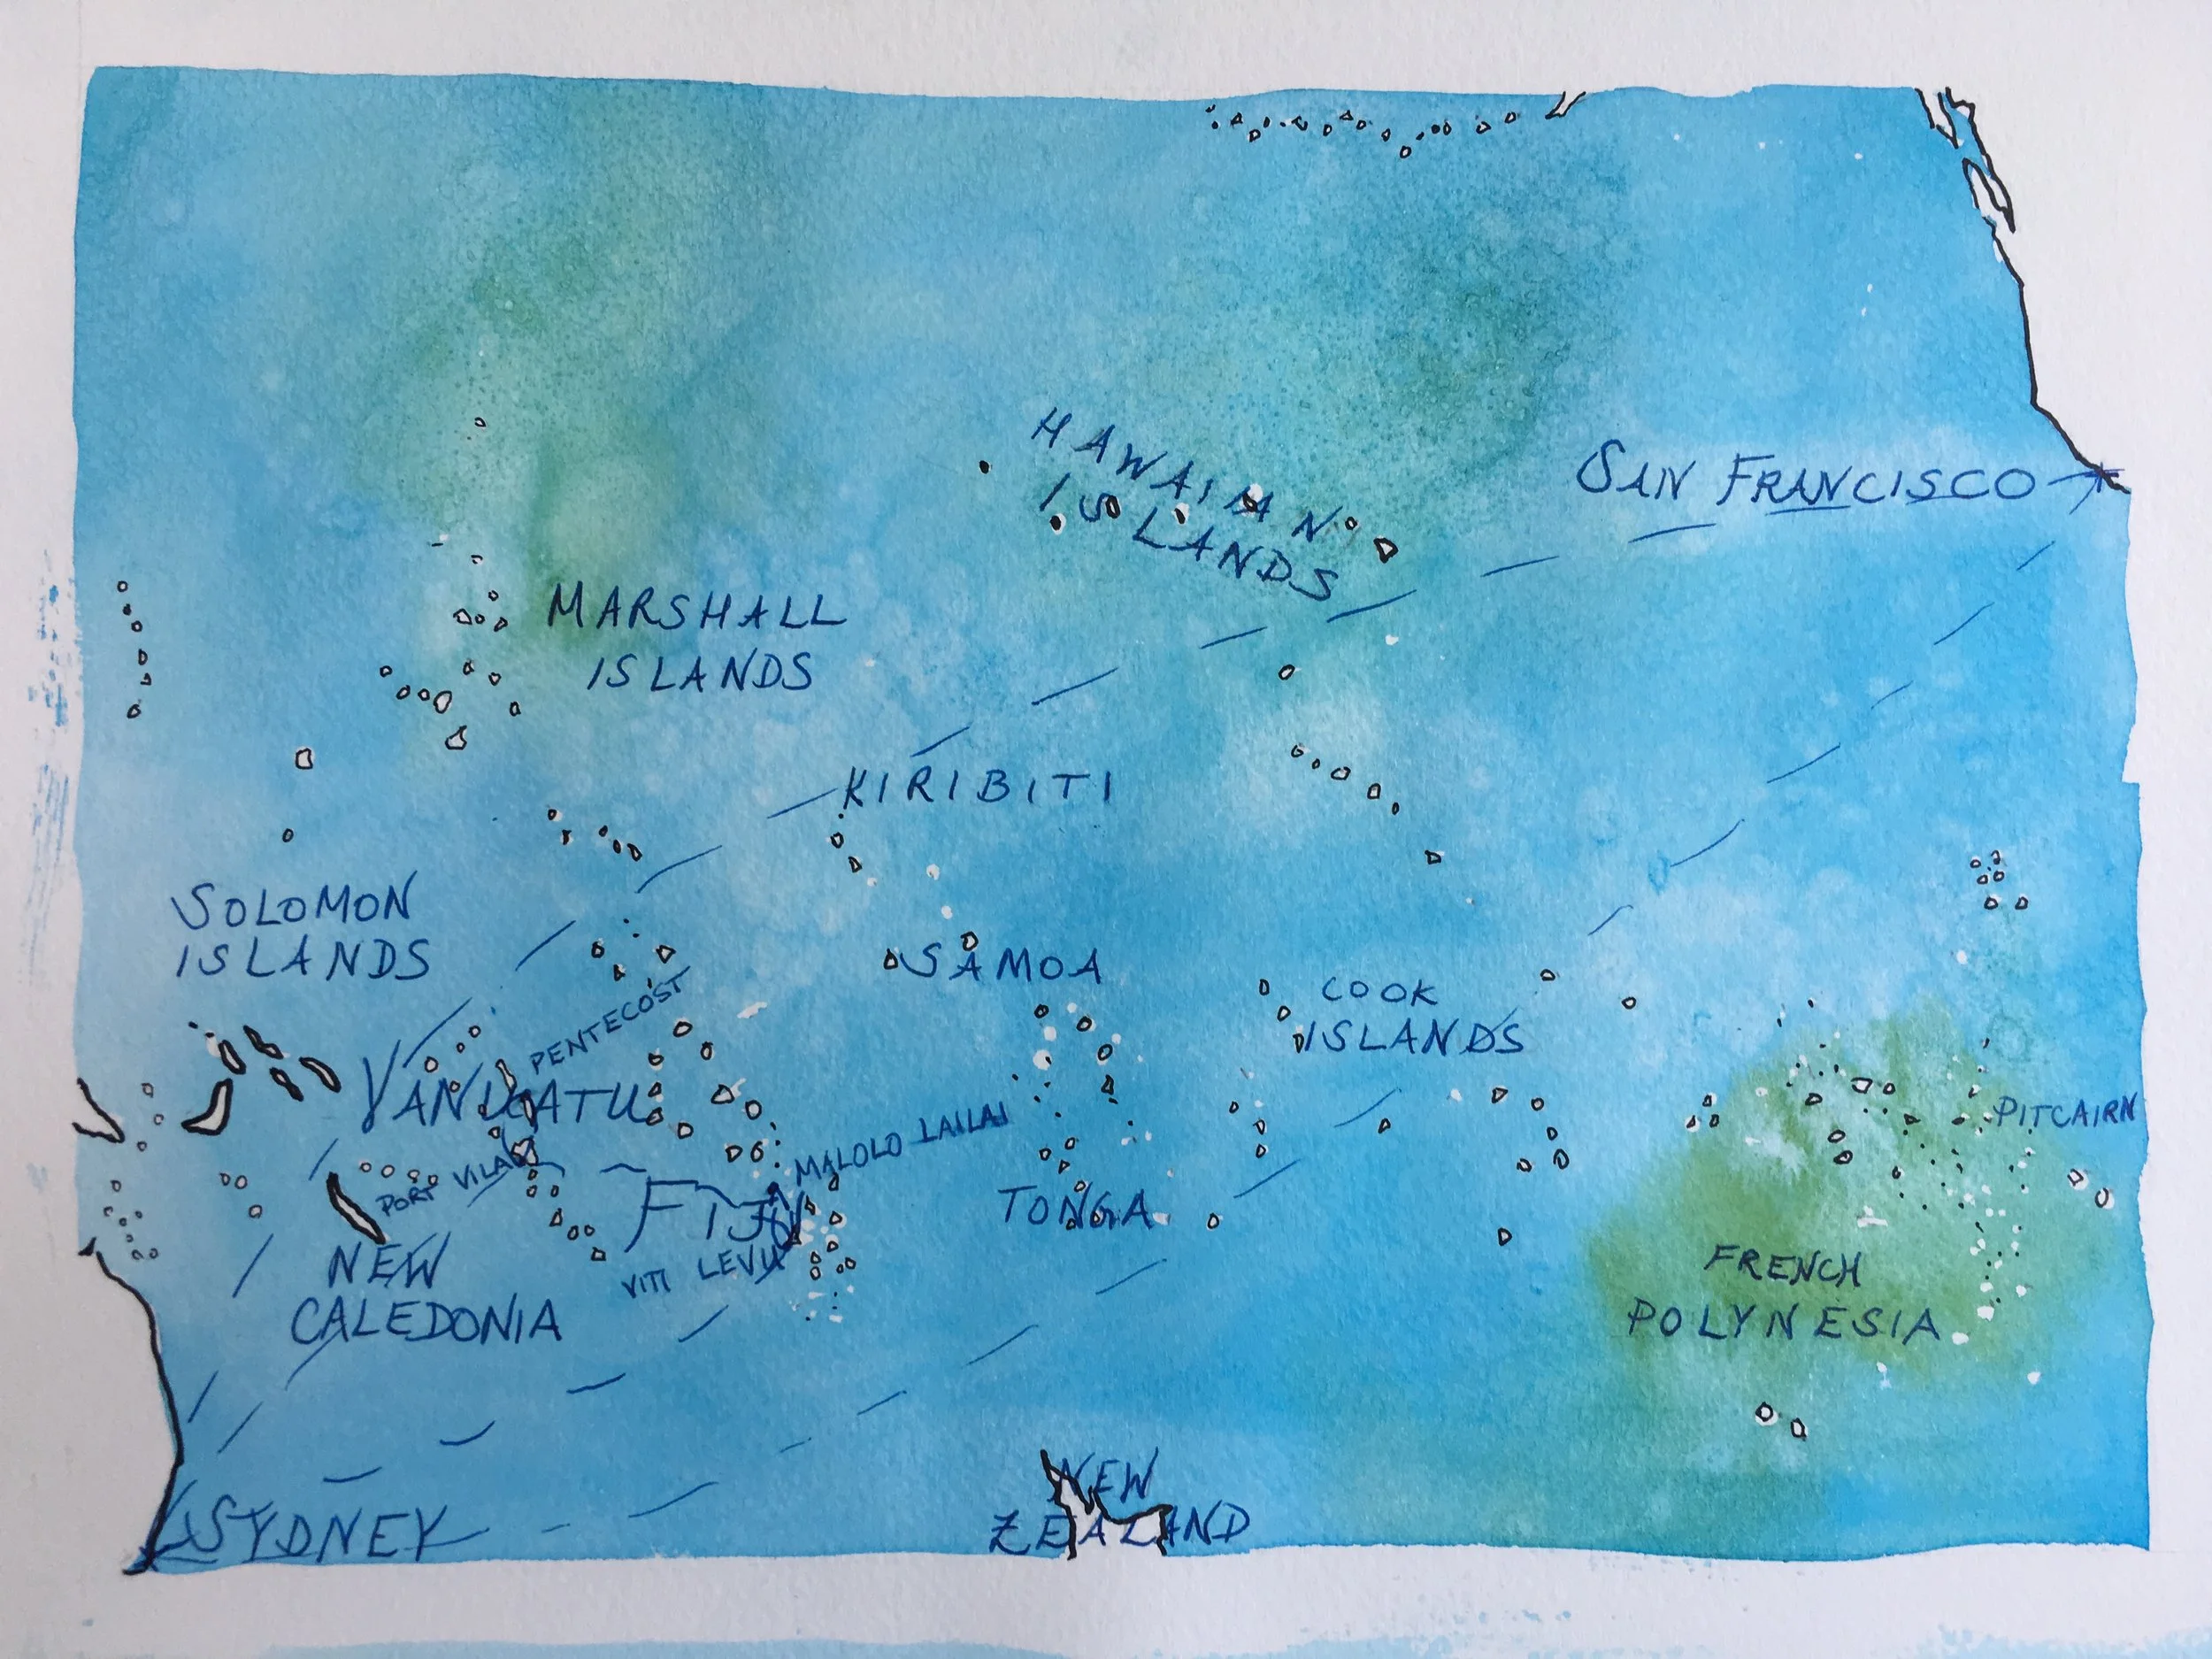 HAWAIIAN
ISLANDS
SAN FRANCISCO
MARSHALL
ISLANDS
KIRIBITI
SOLOMON
ISLANDS
SAMOA
COOK
ISLANDS
PENTECOST
VANUATU
PITCAIRN
MALOLO LAILAI
PORT VILA
FIJI
TONGA
VITI LEVU
NEW
CALEDONIA
FRENCH
POLYNESIA
SYDNEY
NEW
ZEALAND